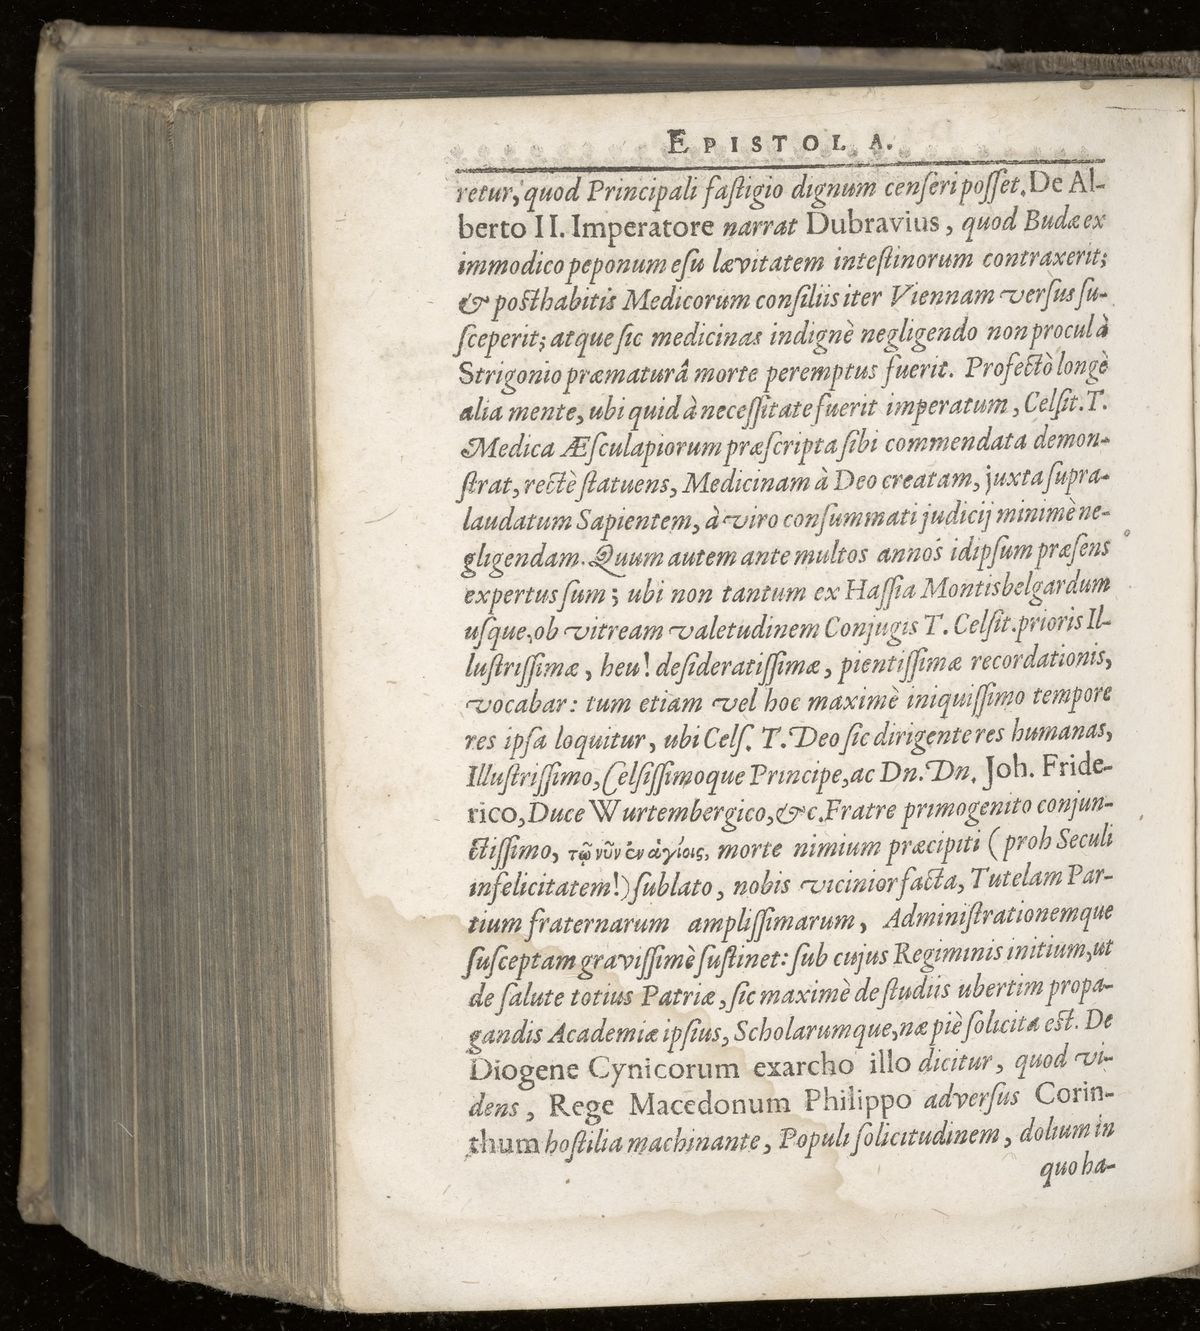 EPISTOLA.
retur, quod Principali fastigio dignum censeri posset. De Al-
berto II. Imperatore narrat Dubravius, quod Budæ ex
immodico peponum esu lævitatem intestinorum contraxerit;
& posthabitis Medicorum consiliis iter Viennam versus su-
sceperit; atque sic medicinas indignè negligendo non procul à
Strigonio præmaturâ morte peremptus fuerit. Profectò longè
alia mente, ubi quid à necessitate fuerit imperatum, Celsit. T.
Medica Æsculapiorum præscripta sibi commendata demon-
strat, rectè statuens, Medicinam à Deo creatam, juxta supra-
laudatum Sapientem, à viro consummati judicij minimè ne-
gligendam. Quum autem ante multos annos idipsum præsens
expertus sum; ubi non tantum ex Hassia Montisbelgardum
usque, ob vitream valetudinem Conjugis T. Celsit. prioris Il-
lustrissimæ, heu! desideratissimæ, pientissimæ recordationis,
vocabar: tum etiam vel hoc maximè iniquissimo tempore
res ipsa loquitur, ubi Cels. T. Deo sic dirigente res humanas,
Illustrissimo, Celsissimoque Principe, ac Dn. Dn. Joh. Fride-
rico, Duce Wurtembergico, &c. Fratre primogenito conjun-
ctissimo, τῷ νῦν ἐν ἁγίοις, morte nimium præcipiti (proh Seculi
infelicitatem!) sublato, nobis vicinior facta, Tutelam Par-
tium fraternarum amplissimarum, Administrationemque
susceptam gravissimè sustinet: sub cujus Regiminis initium, ut
de salute totius Patriæ, sic maximè de studiis ubertim propa-
gandis Academiæ ipsius, Scholarumque, næ piè solicita est. De
Diogene Cynicorum exarcho illo dicitur, quod vi-
dens, Rege Macedonum Philippo adversus Corin-
thum hostilia machinante, Populi solicitudinem, dolium in
quo ha-